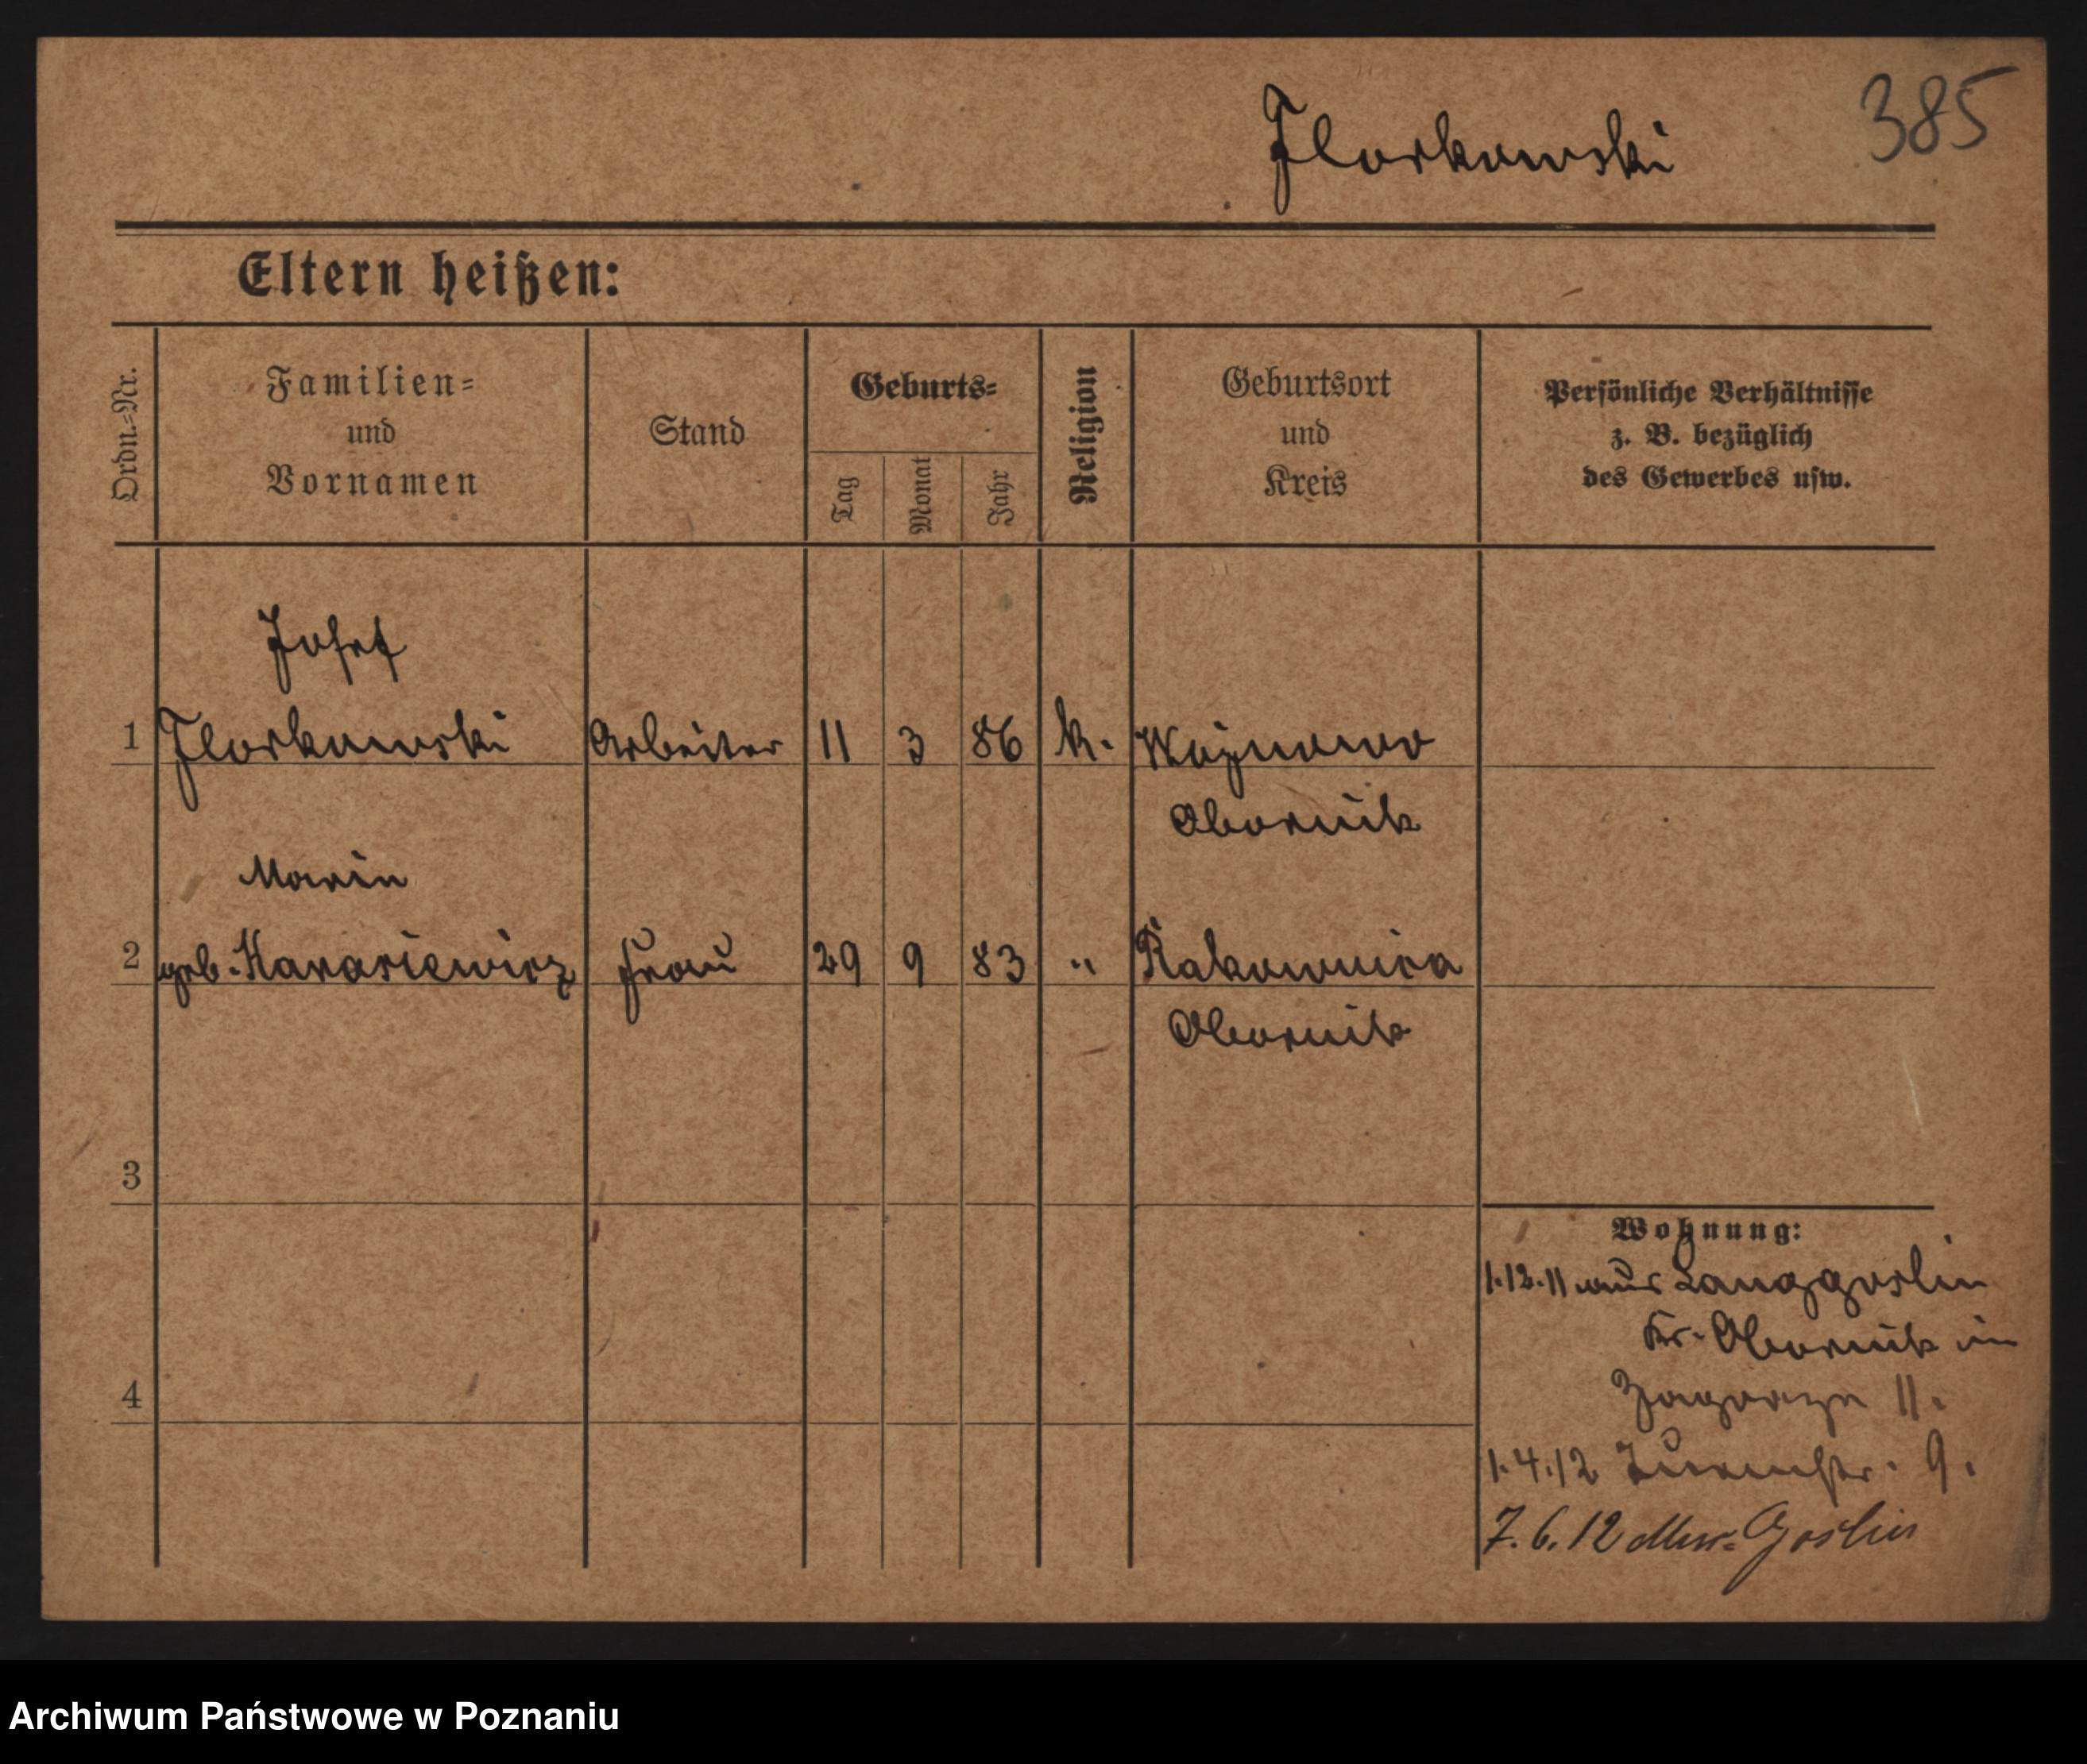 385
Florkowski
Eltern heißen:
Ordn.-Nr.
Familien-
und
Vornamen
Stand
Geburts-
Tag
Monat
Jahr
Religion
Geburtsort
und
Kreis
Persönliche Verhältnisse
z. B. bezüglich
des Gewerbes usw.
Josef
1 Florkowski Arbeiter 11 3 86 k. Wojnowo
Obornik
Marie
2 geb. Karariewicz Frau 29 9 83 " Rakownica
Obornik
3
Wohnung:
1.12.11 aus Langgoslin
Kr. Obornik in
4
Zagorze 11.
1.4.12 Turmstr. 9.
7.6.12 Mur. Goslin
Archiwum Państwowe w Poznaniu